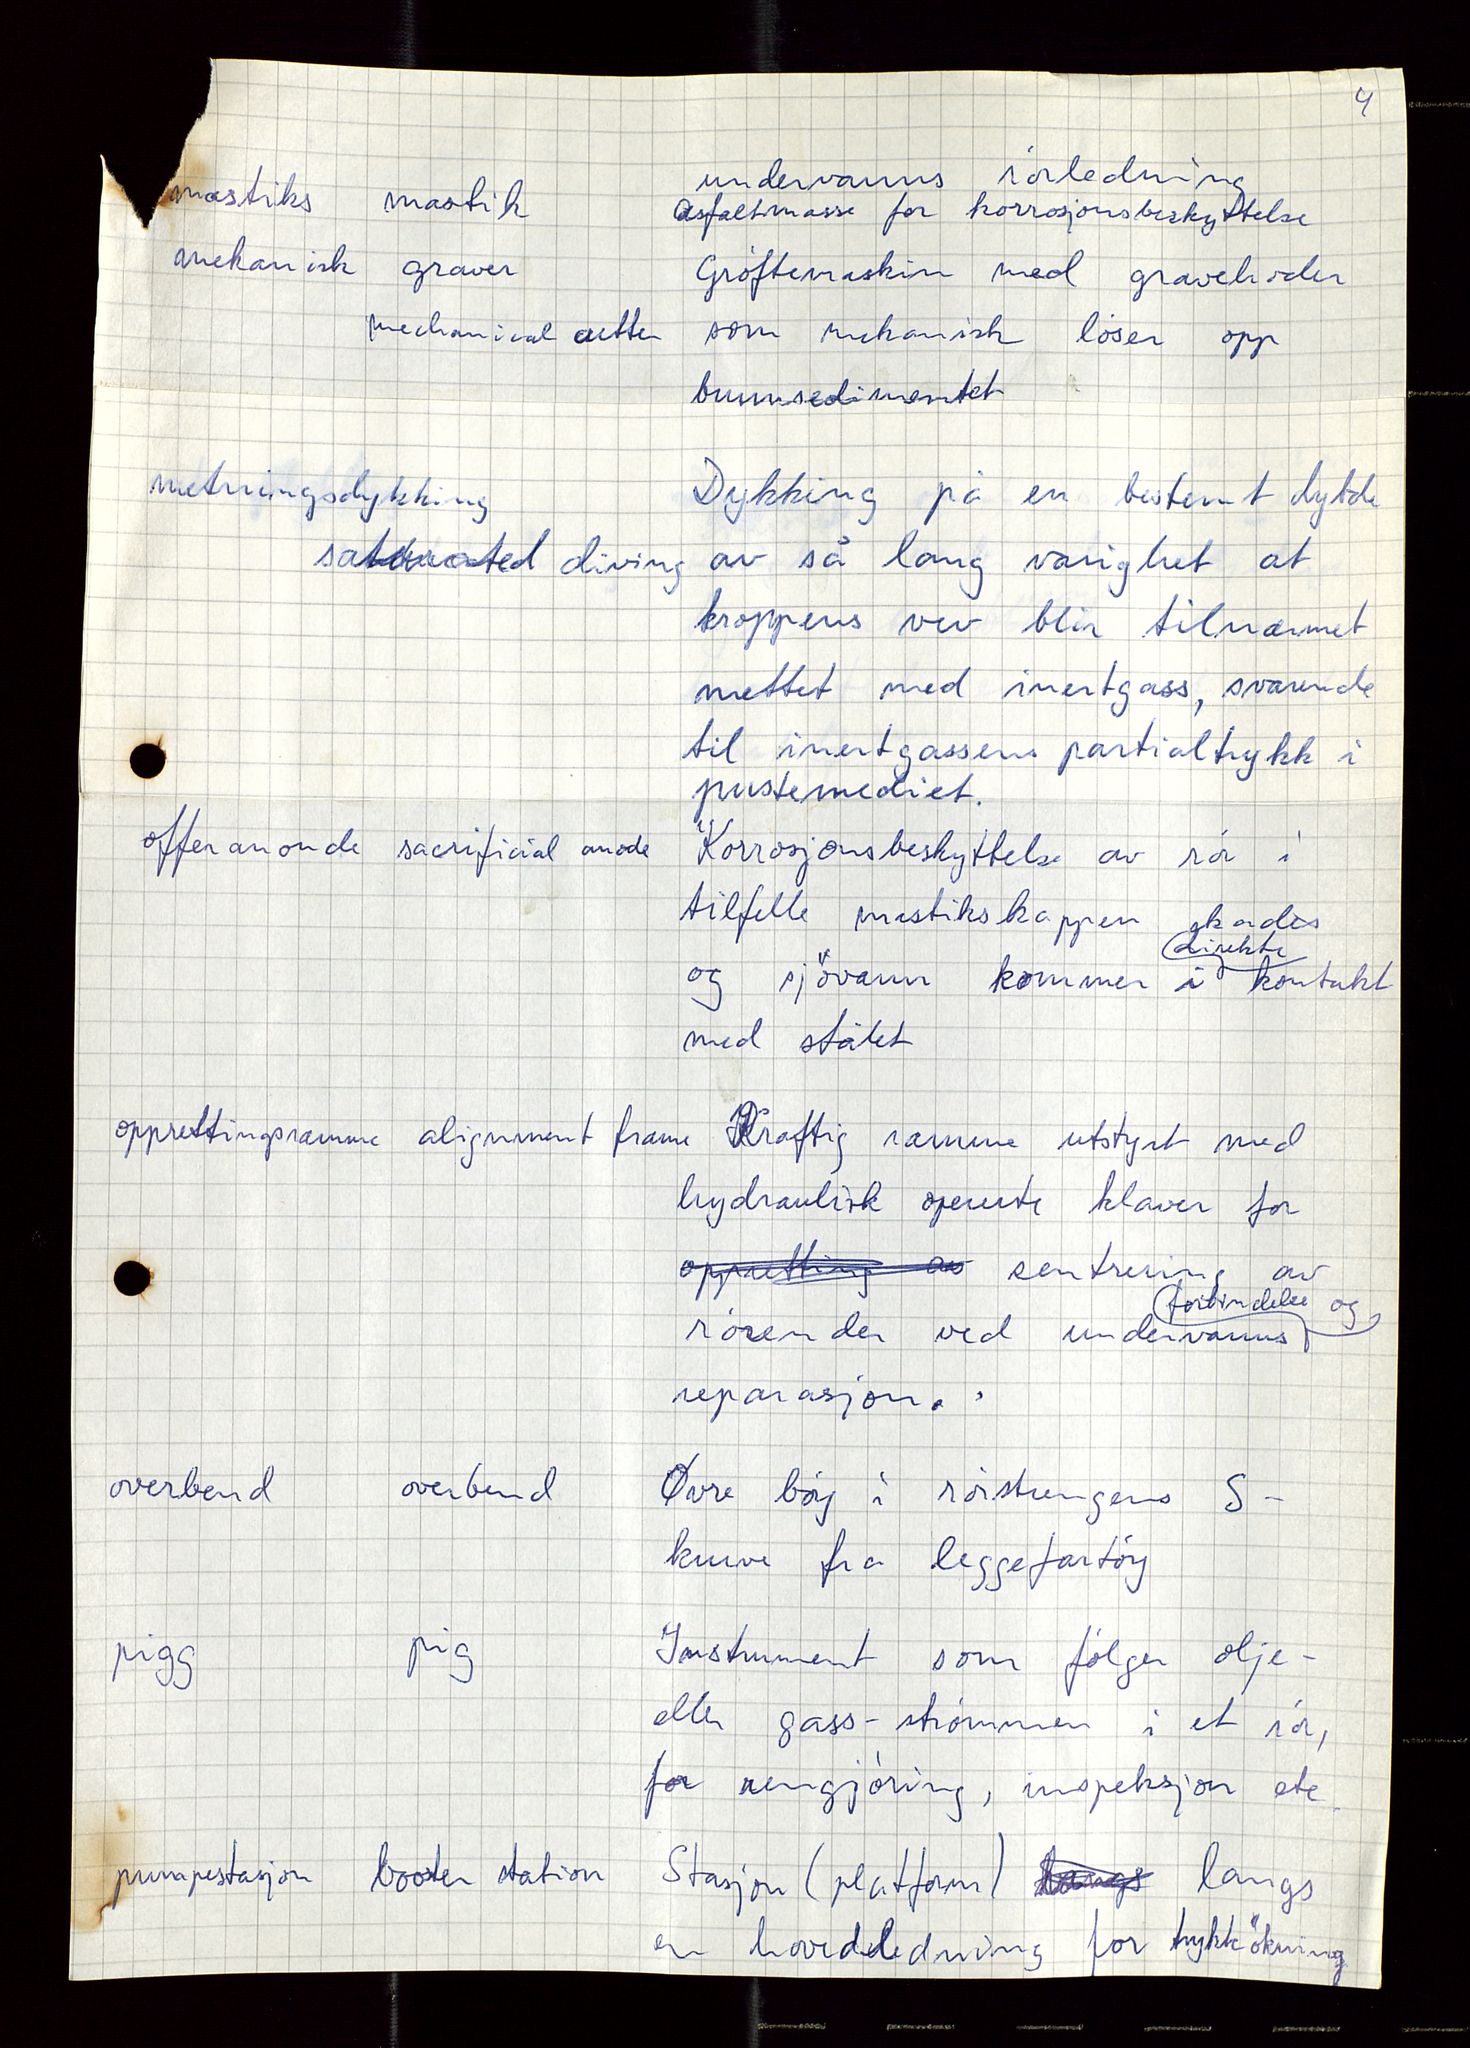 4
undervanns rörledning
mastiks mastik asfaltmasse for korrosjonsbeskyttelse
mekanisk graver Gröftemaskin med gravehoder
mechanical cutter som mekanisk löser opp
bunnsedimentet
metningsdykking Dykking på en bestemt dybde
saturated diving av så lang varighet at
kroppens vev blir tilnærmet
mettet med inertgass, svarende
til inertgassens partialtrykk i
pustemediet.
offeranonde sacrificial anode Korrosjonsbeskyttelse av rör i
tilfelle mastikskappen skades
direkte
og sjövann kommer i kontakt
med stålet
opprettingsramme alignment frame Kraftig ramme utstyrt med
hydraulisk opererte klaver for
oppretting av sentrering av
forbindelse og
rörender ved undervanns
reparasjon.
overbend overbend Øvre böy i rörstrengens S-
kurve fra leggefartöy
pigg pig Instrument som fölger olje-
eller gass-strömmen i et rör,
for rengjöring, inspeksjon etc.
pumpestasjon booster station Stasjon (platform) langs langs
en hovedledning for trykkökning